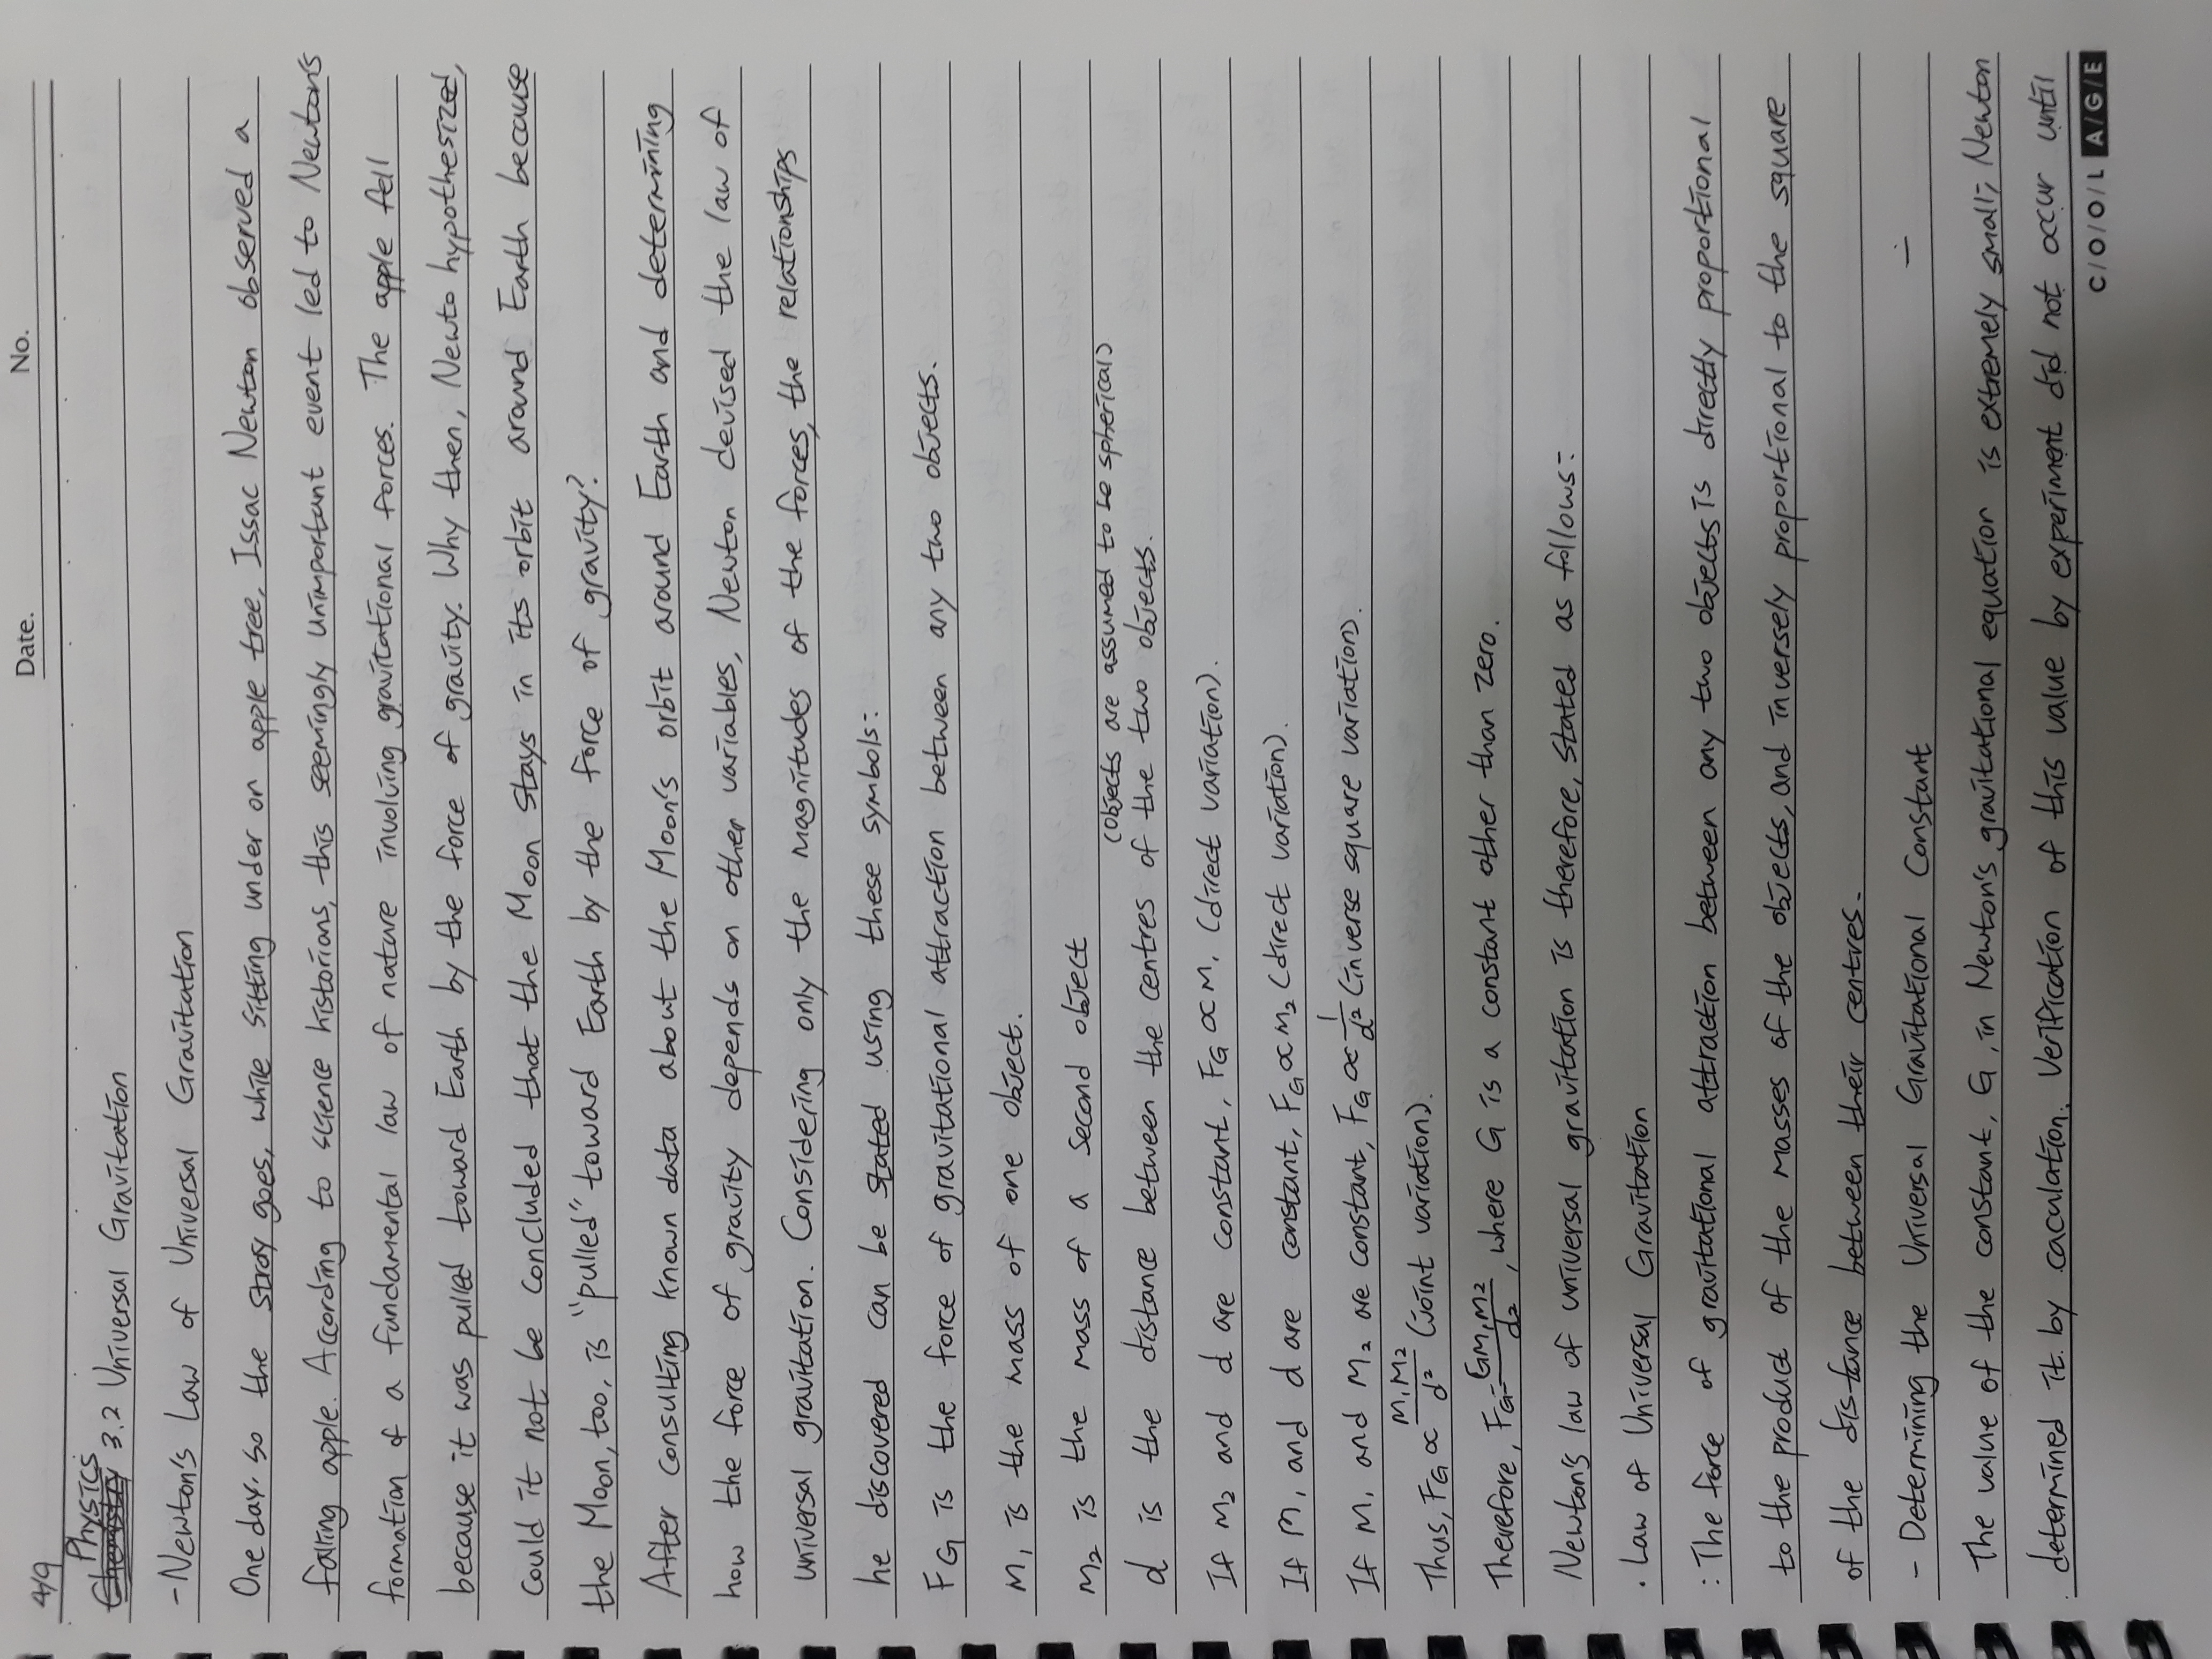 Date. No.
4/9
Physics
3.2 Universal Gravitation
- Newton's Law of Universal Gravitation
One day. so the story goes, while sitting under on apple tree, Issac Newton observed a
falling apple. According to science historians, this seemingly unimportant event led to Newton's
formation of a fundamental law of nature involving gravitational forces. The apple fell
because it was pulled toward Earth by the force of gravity. Why then, Newto hypothesized,
could it not be concluded that the Moon stays in its orbit around Earth because
the Moon, too, is "pulled" toward Earth by the force of gravity?
After consulting known data about the Moon's orbit around Earth and determining
how the force of gravity depends on other variables, Newton devised the law of
universal gravitation. Considering only the magnitudes of the forces, the relationships
he discovered can be stated using these symbols:
FG is the force of gravitational attraction between any two objects.
m₁ is the mass of one object.
m₂ is the mass of a second object
(objects are assumed to be spherical)
d is the distance between the centres of the two objects.
If m₂ and d are constant, FG ∝ m₁ (direct variation).
If m₁ and d are constant, FG ∝ m₂ (direct variation).
If m₁ and m₂ are constant, FG ∝ 1/d² (inverse square variation).
Thus, FG ∝ m₁m₂/d² (joint variation).
Therefore, FG = Gm₁m₂/d², where G is a constant other than zero.
Newton's law of universal gravitation is therefore, stated as follows:
· Law of Universal Gravitation
: The force of gravitational attraction between any two objects is directly proportional
to the product of the masses of the objects, and inversely proportional to the square
of the distance between their centres.
- Determining the Universal Gravitational Constant -
The value of the constant, G, in Newton's gravitational equation is extremely small; Newton
determined it by caculation. Verification of this value by experiment did not occur until
C/O/O/L A/G/E